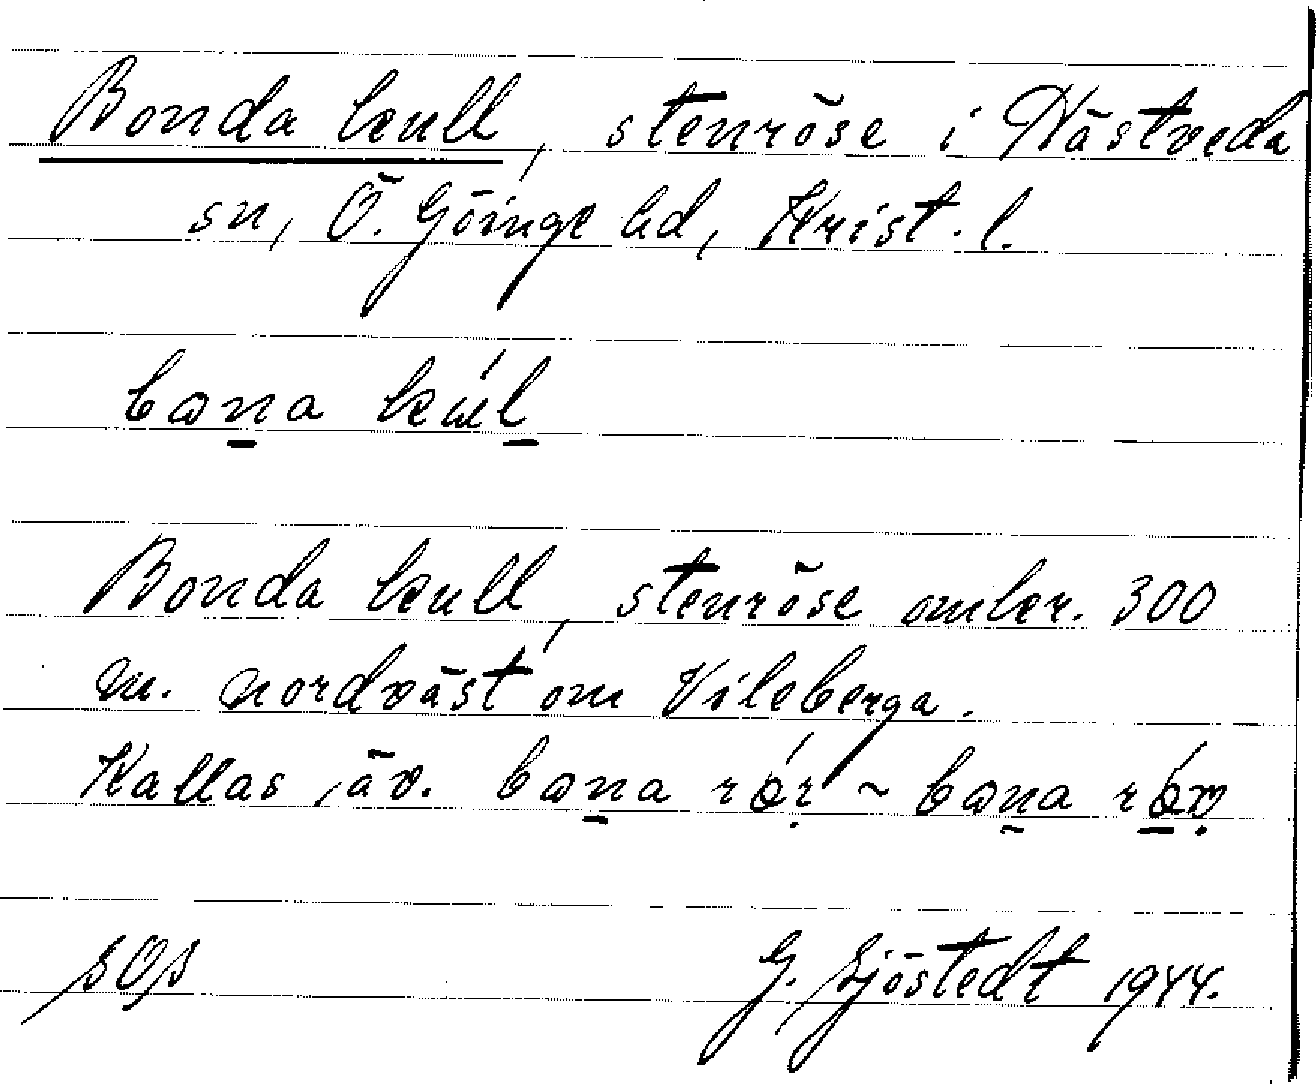 Bonda kull, stenröse i Hästveda
sn, Ö. Göinge hd, Krist. l.
bɷn̲a kúl̲
Bonda kull, stenröse omkr. 300
m. nordväst om Vileberga.
Kallas äv. bɷn̲a rǿṛ ~ bɷn̲a
SOS G. Sjöstedt 1944.